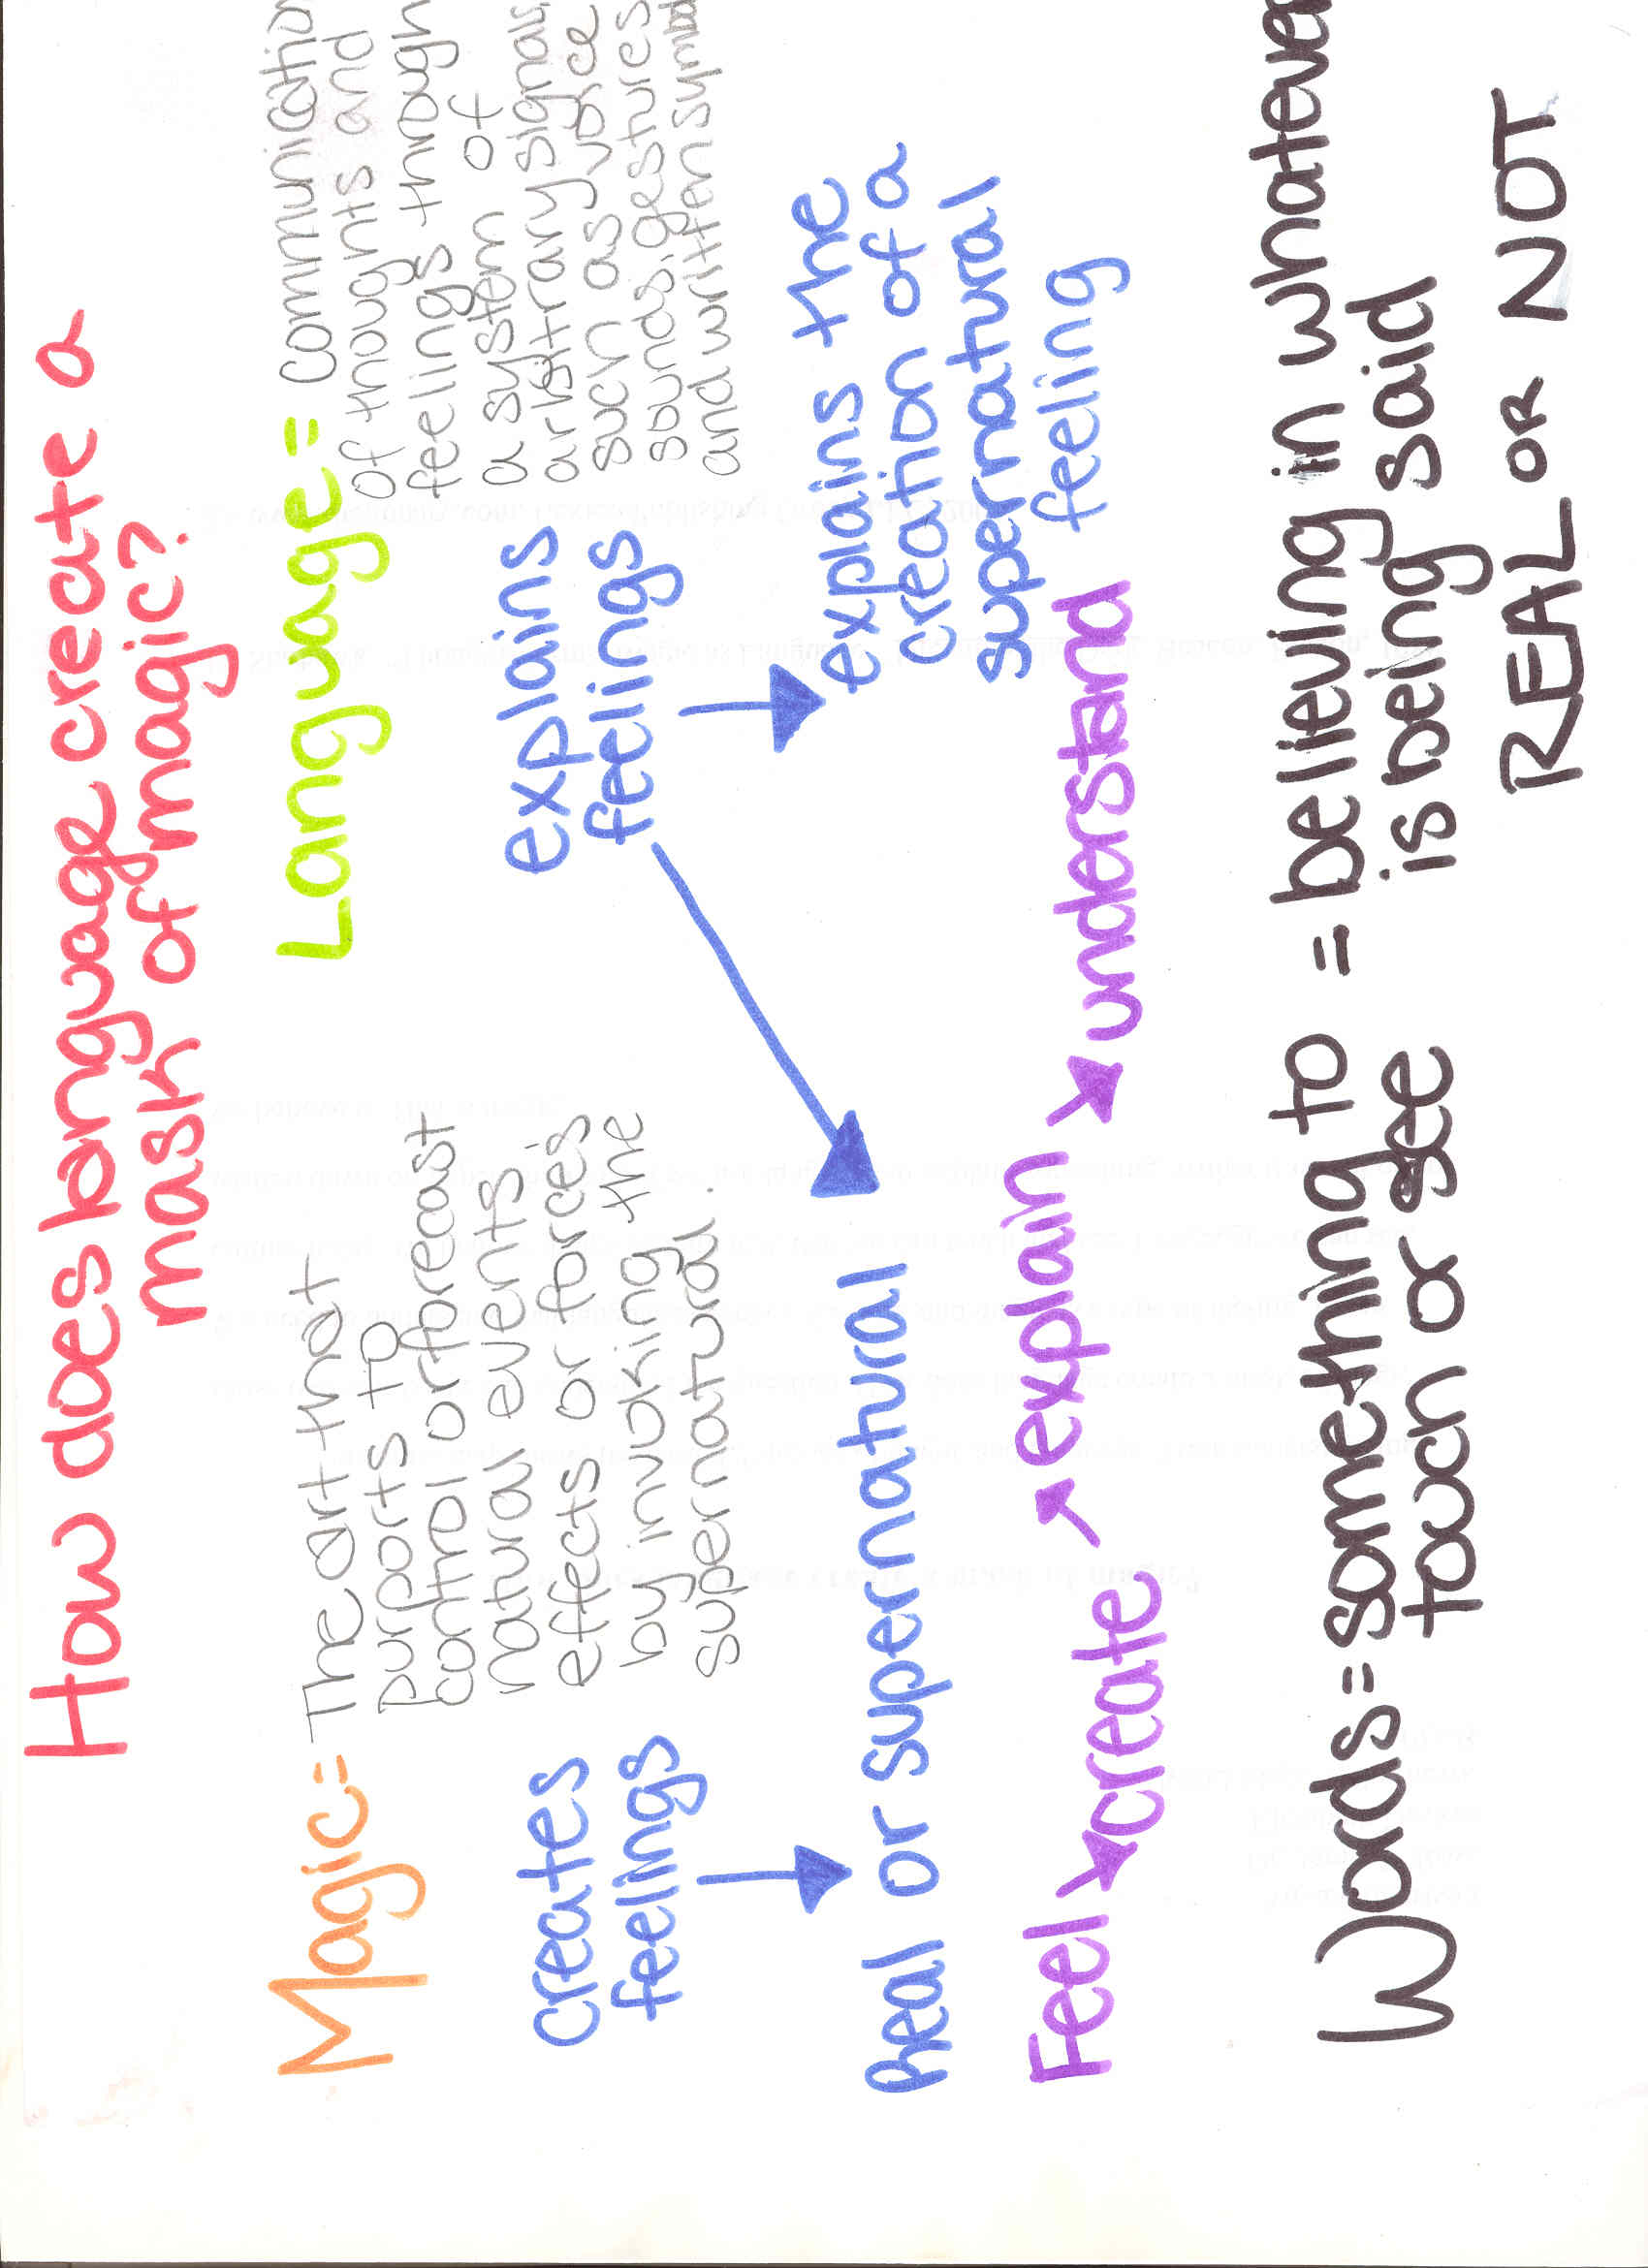 How does language create a
mask of magic?
Magic=
The art that
purports to
control or forecast
natural events,
effects or forces
by invoking the
supernatural.
Language=
communication
of thoughts and
feelings through
a system of
arbitrary signals
such as voice
sounds, gestures
and written symbols
creates
feelings
explains
feelings
Real or supernatural
explains the
creation of a
supernatural
feeling
Feel create explain understand
Words= something to = believing in whatever
touch or see is being said
REAL OR NOT